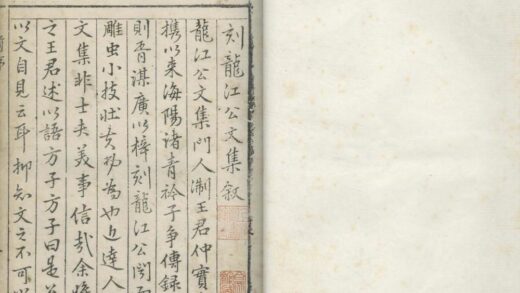 刻龍江公文集叙
龍江公文集門人淛王君仲實
携以来海陽諸青衿子争傳録
則吾謀廣以梓刻龍江公闻而
雕虫小技壮夫為也近達人
文集非士夫美事信哉余
之王君述以語方子方子曰是
以文自見云耳抑知文之不可以